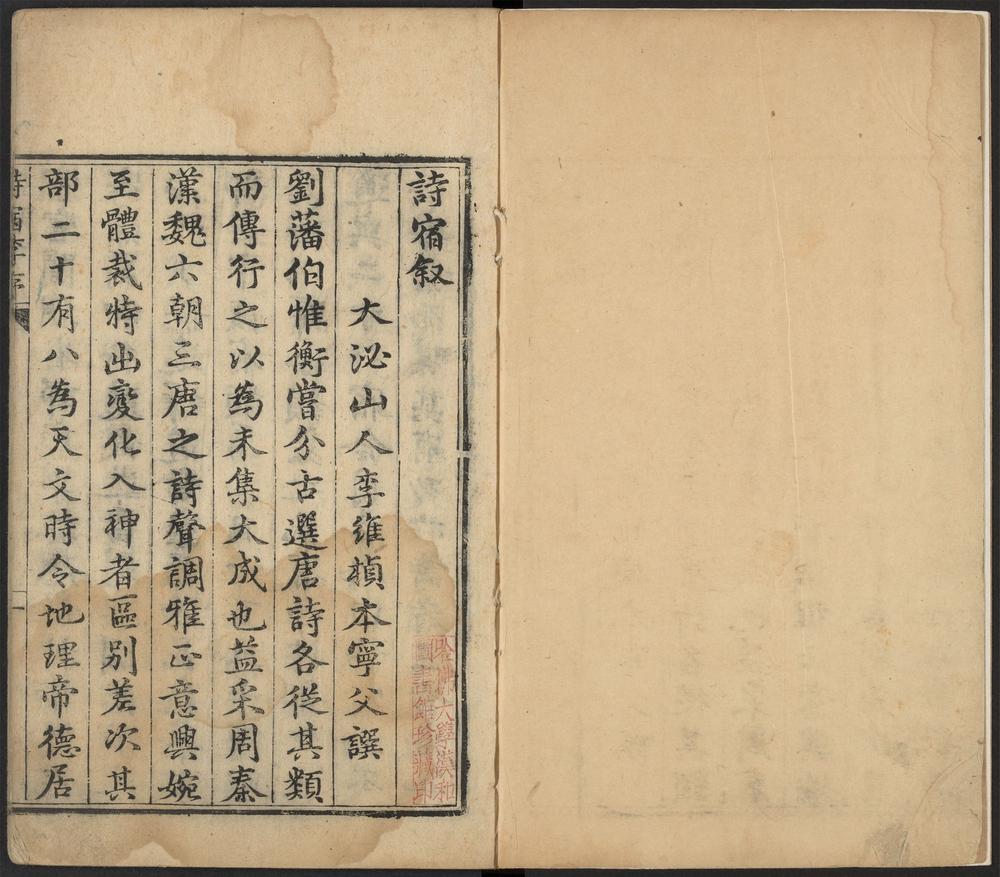 詩宿叙
大泌山人李維楨本寧父譔
劉藩伯惟衡嘗分古選唐詩各從其類
而傳行之以為未集大成也益采周秦
漢魏六朝三唐之詩聲調雅正意興婉
至體裁特出變化入神者區別差次其
部二十有八為天文時令地理帝德居
詩宿李序
一
哈佛大學漢和
圖書館珍藏印